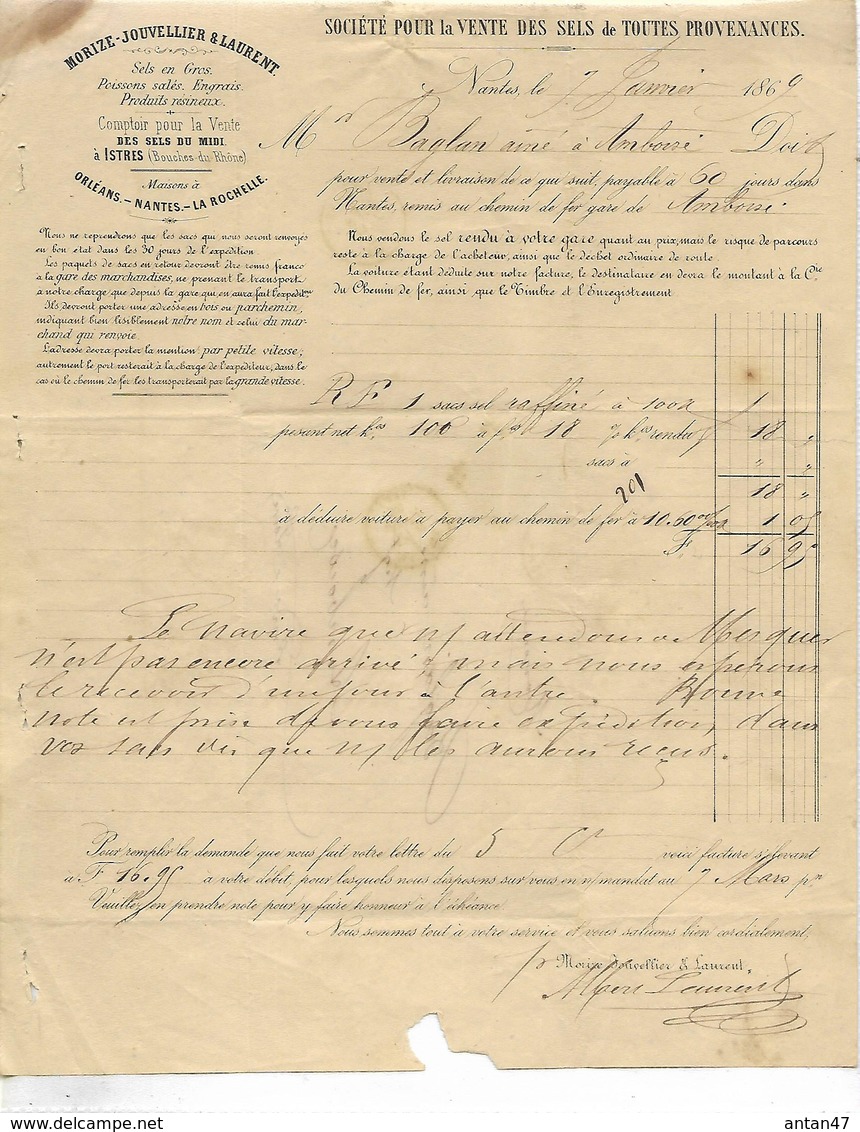 MORIZE-JOUVELLIER & LAURENT.
Sels en Gros.
Poissons salés. Engrais.
Produits résineux.
Comptoir pour la Vente
DES SELS DU MIDI.
à ISTRES (Bouches-du-Rhône)
Maisons à
ORLÉANS.-NANTES.-LA ROCHELLE.
Nous ne reprendrons que les sacs qui nous seront renvoyés
en bon état dans les 30 jours de l'expédition.
Les paquets de sacs en retour devront être remis franco
à la gare des marchandises, ne prenant le transport
à notre charge que depuis la gare qui en aura fait l'expédit.on
Ils devront porter une adresse en bois ou parchemin,
indiquant bien lisiblement notre nom et celui du mar-
chand qui renvoie.
L'adresse devra porter la mention par petite vitesse;
autrement le port resterait à la charge de l'expéditeur, dans le
cas où le chemin de fer les transporterait par la grande vitesse.
SOCIÉTÉ POUR la VENTE DES SELS de TOUTES PROVENANCES.
Nantes, le 7 Janvier 1869
Mr Baglan ainé à Amboise Doit
pour vente et livraison de ce que suit, payable à 60 jours dans
Nantes, remis au chemin de fer gare de Amboise
Nous vendons le sel rendu à votre gare quant au prix, mais le risque de parcours
reste à la charge de l'acheteur, ainsi que le déchet ordinaire de route.
La voiture étant déduite sur notre facture, le destinataire en devra le montant à la Cie
du Chemin de fer, ainsi que le Timbre et l'Enregistrement.
R F 1 sacs sel raffiné à 100k 1
pesant net k.os 100 à f.cs 18 % k.os rendus 18 "
sacs à " "
18 "
201
à déduire voiture à payer au chemin de fer à 10.60 1 05
F. 16 95
Le navire que n/ attendons Mesquer
n'est pas encore arrivé, mais nous espérons
le recevoir d'un jour à l'autre. Bonne
note est prise de vous faire expédition, dans
vos sacs dès que n/ les aurons reçus.
Pour remplir la demande que nous fait votre lettre du 5 Ct voici facture s'élevant
à F 16.95 à votre débit, pour lesquels nous disposons sur vous en n/ mandat au 7 Mars pn
Veuillez en prendre note pour y faire honneur à l'échéance.
Nous sommes tout à votre service et vous saluons bien cordialement,
pr Morize Jouvellier & Laurent,
Laurent
antan47